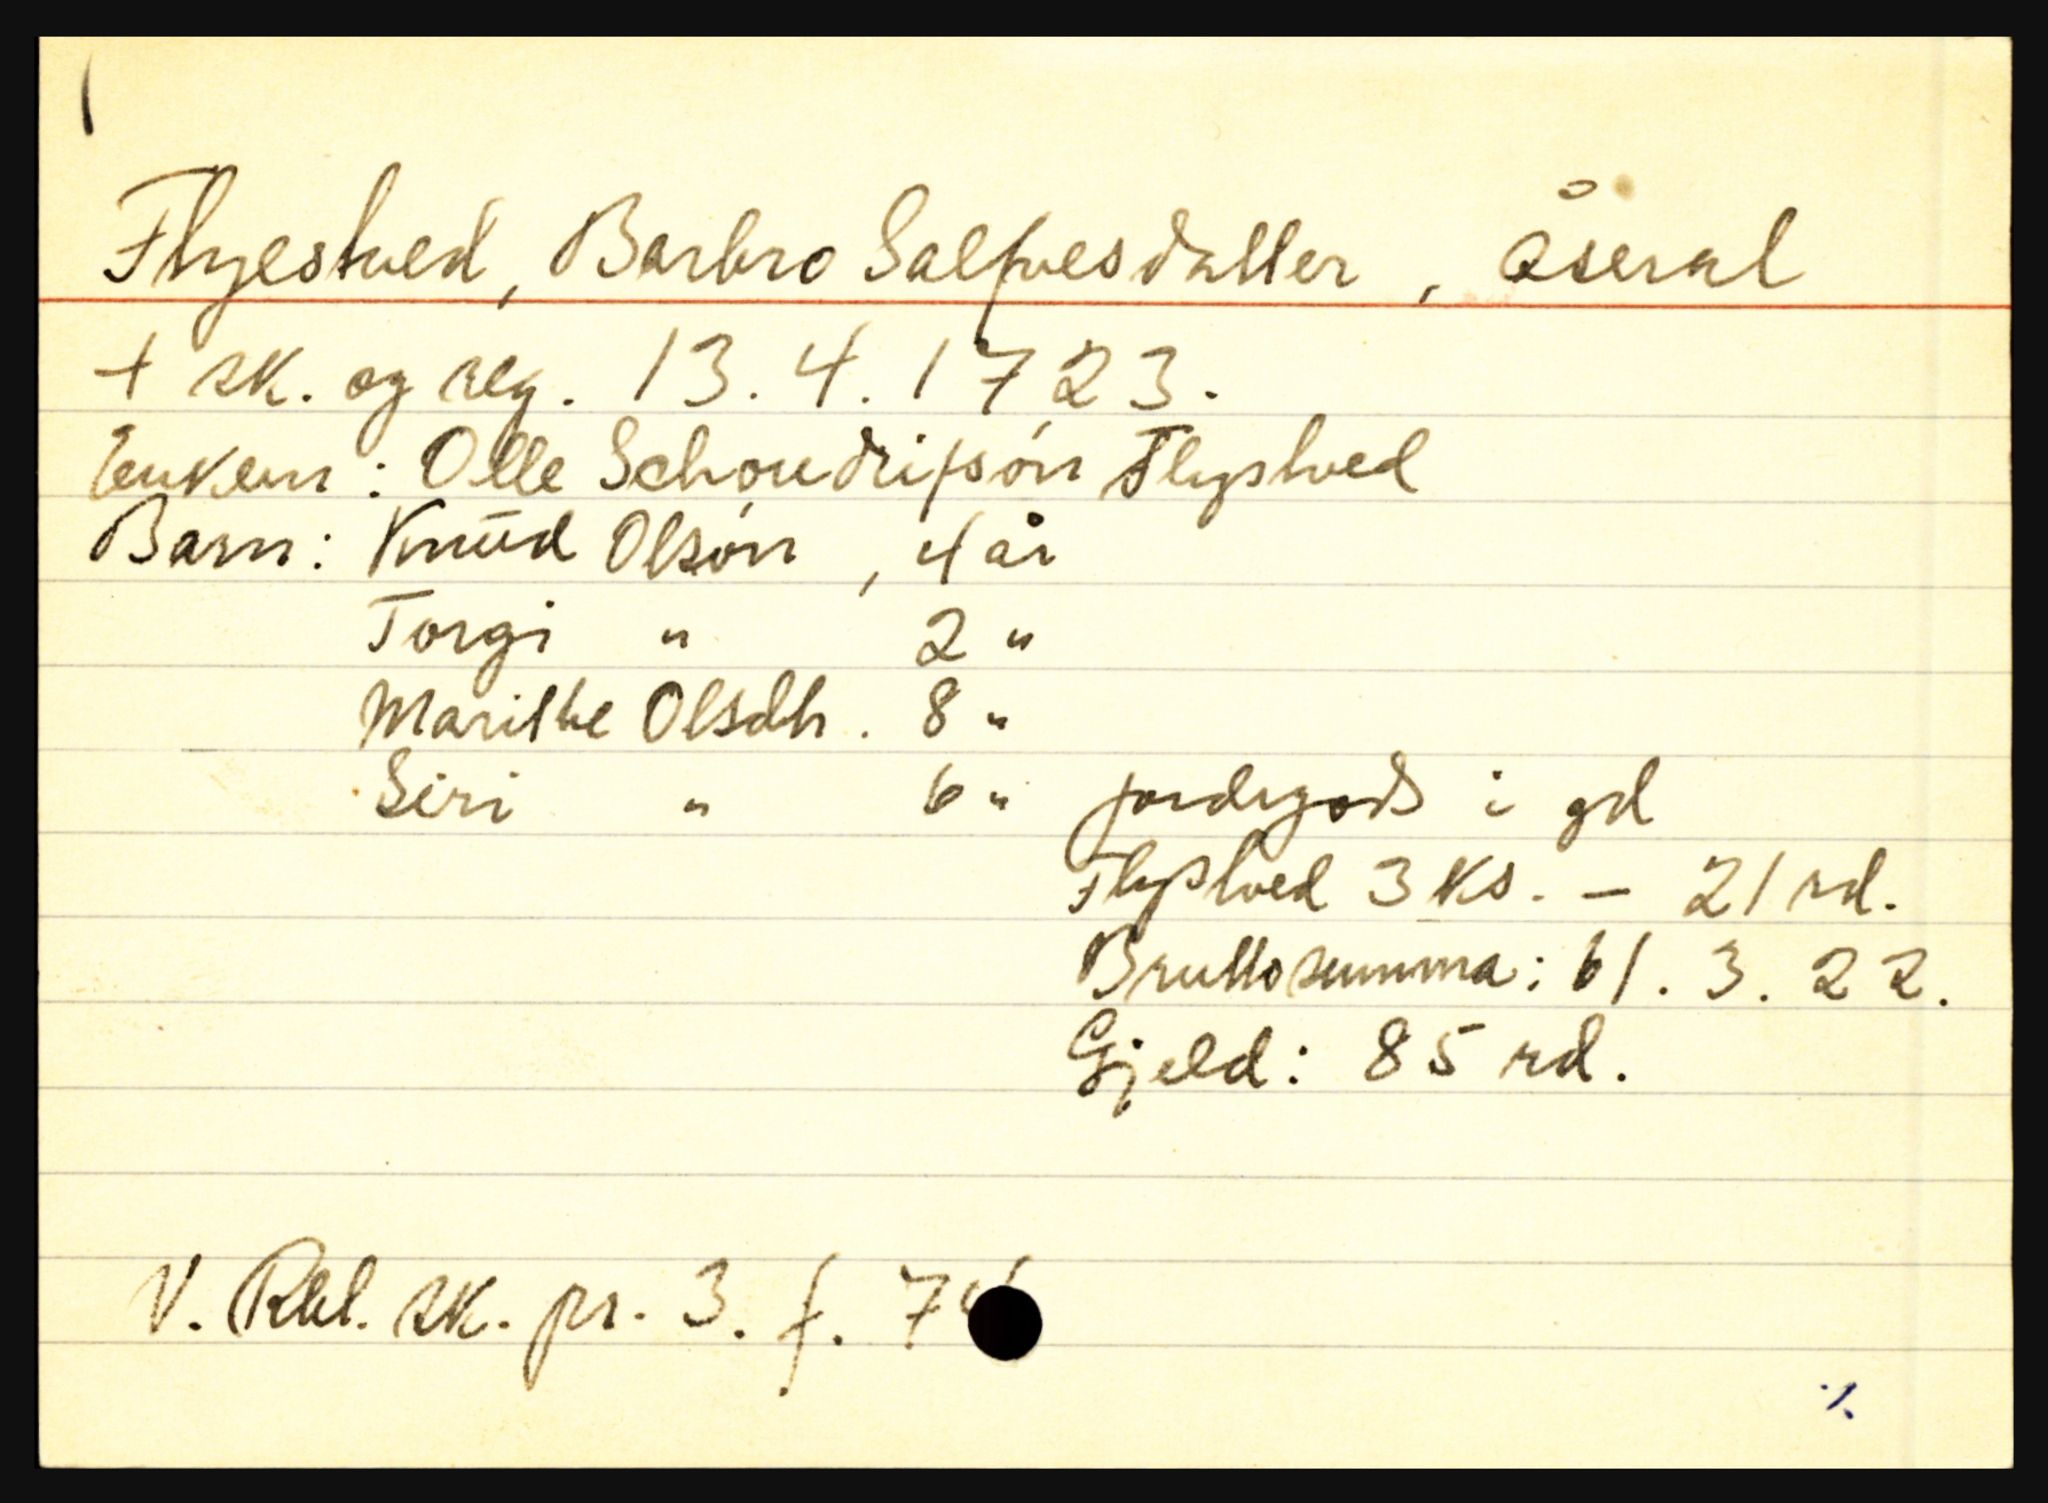 Flyestved, Barbro Salfvesdatter, Åseral
+ sk. og reg. 13.4.1723.
Enkem: Olle Schoudrifsón Flystved
Barn: Knud Olsón, 4 år
Torgi " 2 "
Marithe Olsdtr. 8 "
Siri " 6 " jordegods i gd
Flystved 3 ks. - 21 rd.
Bruttosumma: 61.3.22.
Gjeld: 85 rd.
V. Rbl. sk. pr. 3. f.